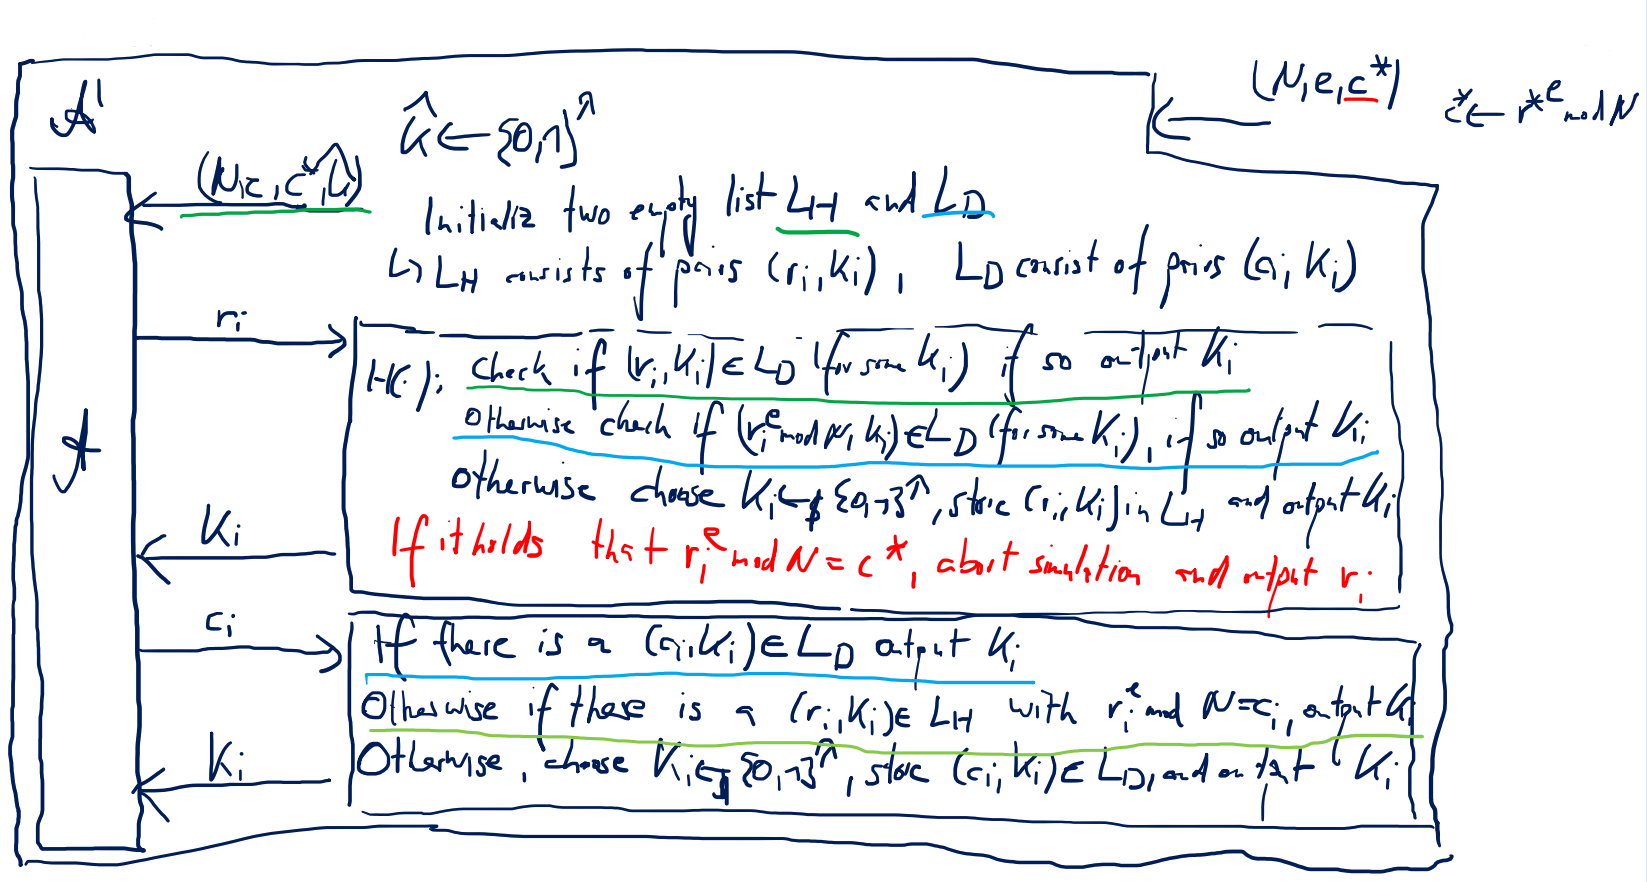 (N, e, c*)
c* ← r*^e mod N
A'
k̂ ← {0,1}^λ
(N, e, c*, k̂)
Initializ two empty list L_H and L_D
↳ L_H consists of pairs (r_i, K_i), L_D consist of pairs (c_i, K_i)
r_i
H(·): Check if (r_i, K_i) ∈ L_D (for some K_i) if so output K_i
Otherwise check if (r_i^e mod N, K_i) ∈ L_D (for some K_i), if so output K_i
Otherwise choose K_i ←$ {0,1}^λ, store (r_i, K_i) in L_H and output K_i
A
K_i
If it holds that r_i^e mod N = c*, abort simulation and output r_i
c_i
If there is a (c_i, K_i) ∈ L_D output K_i
Otherwise if there is a (r_i, K_i) ∈ L_H with r_i^e mod N = c_i, output K_i
K_i
Otherwise, choose K_i ←$ {0,1}^λ, store (c_i, K_i) ∈ L_D, and output K_i